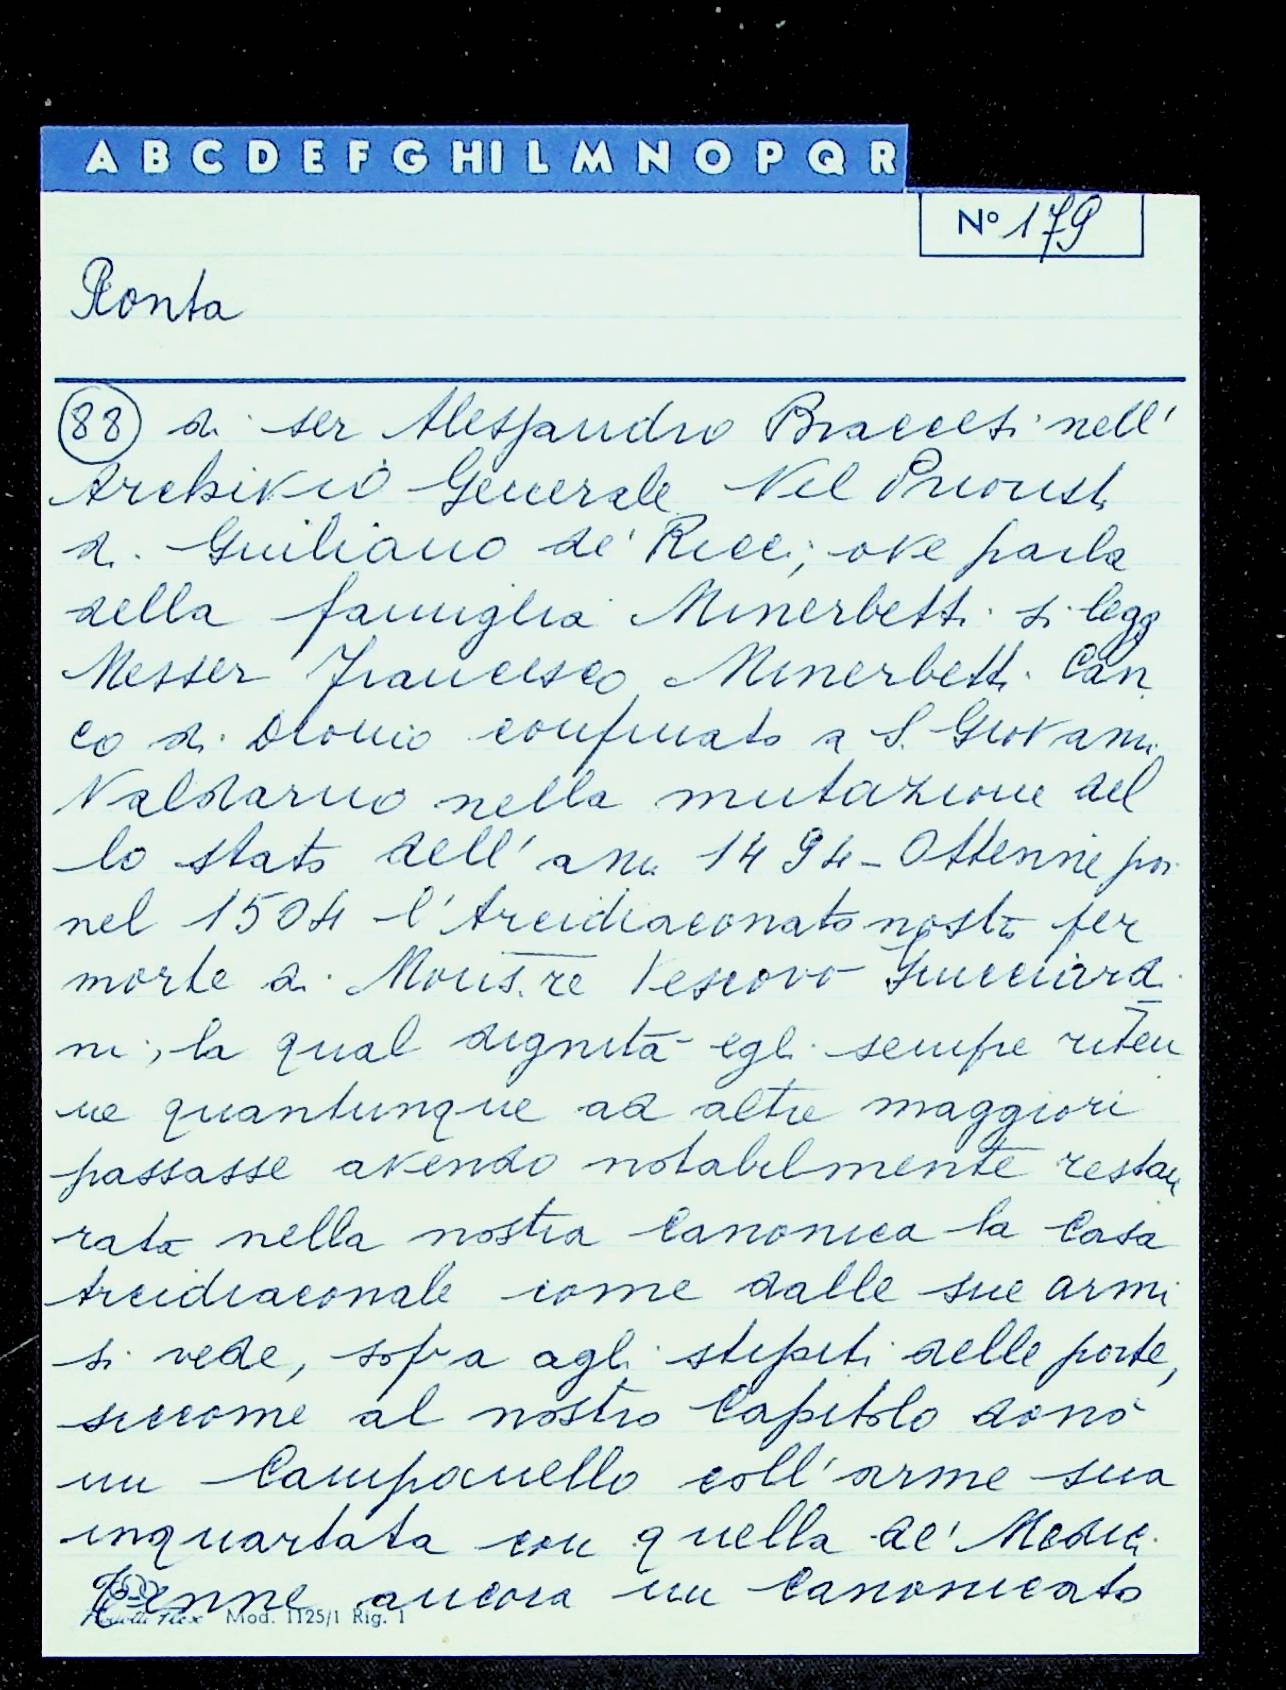 A B C D E F G HI L M N O P Q R
N° 179
Ronta
88 di ser Alessandro Braccesi nell'
Archivio Generale Nel Priorist
di Guiliano de' Ricci; ove parla
della famiglia Minerbetti si legg
Messer Francesco Minerbetti Can
co di Duomo confinato a S. Giovanni
Valdarno nella mutazione del
lo stato dell'ann 1494 - Ottenne poi
nel 1504 l'Arcidiaconato nostro per
morte di Mons.re Vescovo Guicciardi
ni, la qual dignità egli sempre riten
ne quantunque ad altre maggiori
passasse avendo notabilmente restau
rata nella nostra Canonica la Casa
Arcidiaconale come dalle sue armi
si vede, sopra agli stipiti delle porte,
siccome al nostro Capitolo donò
un Campanello coll'arme sua
inquartata con quella de' Medici
Tenne ancora un Canonicato
Mod. 1125/1 Rig. 1